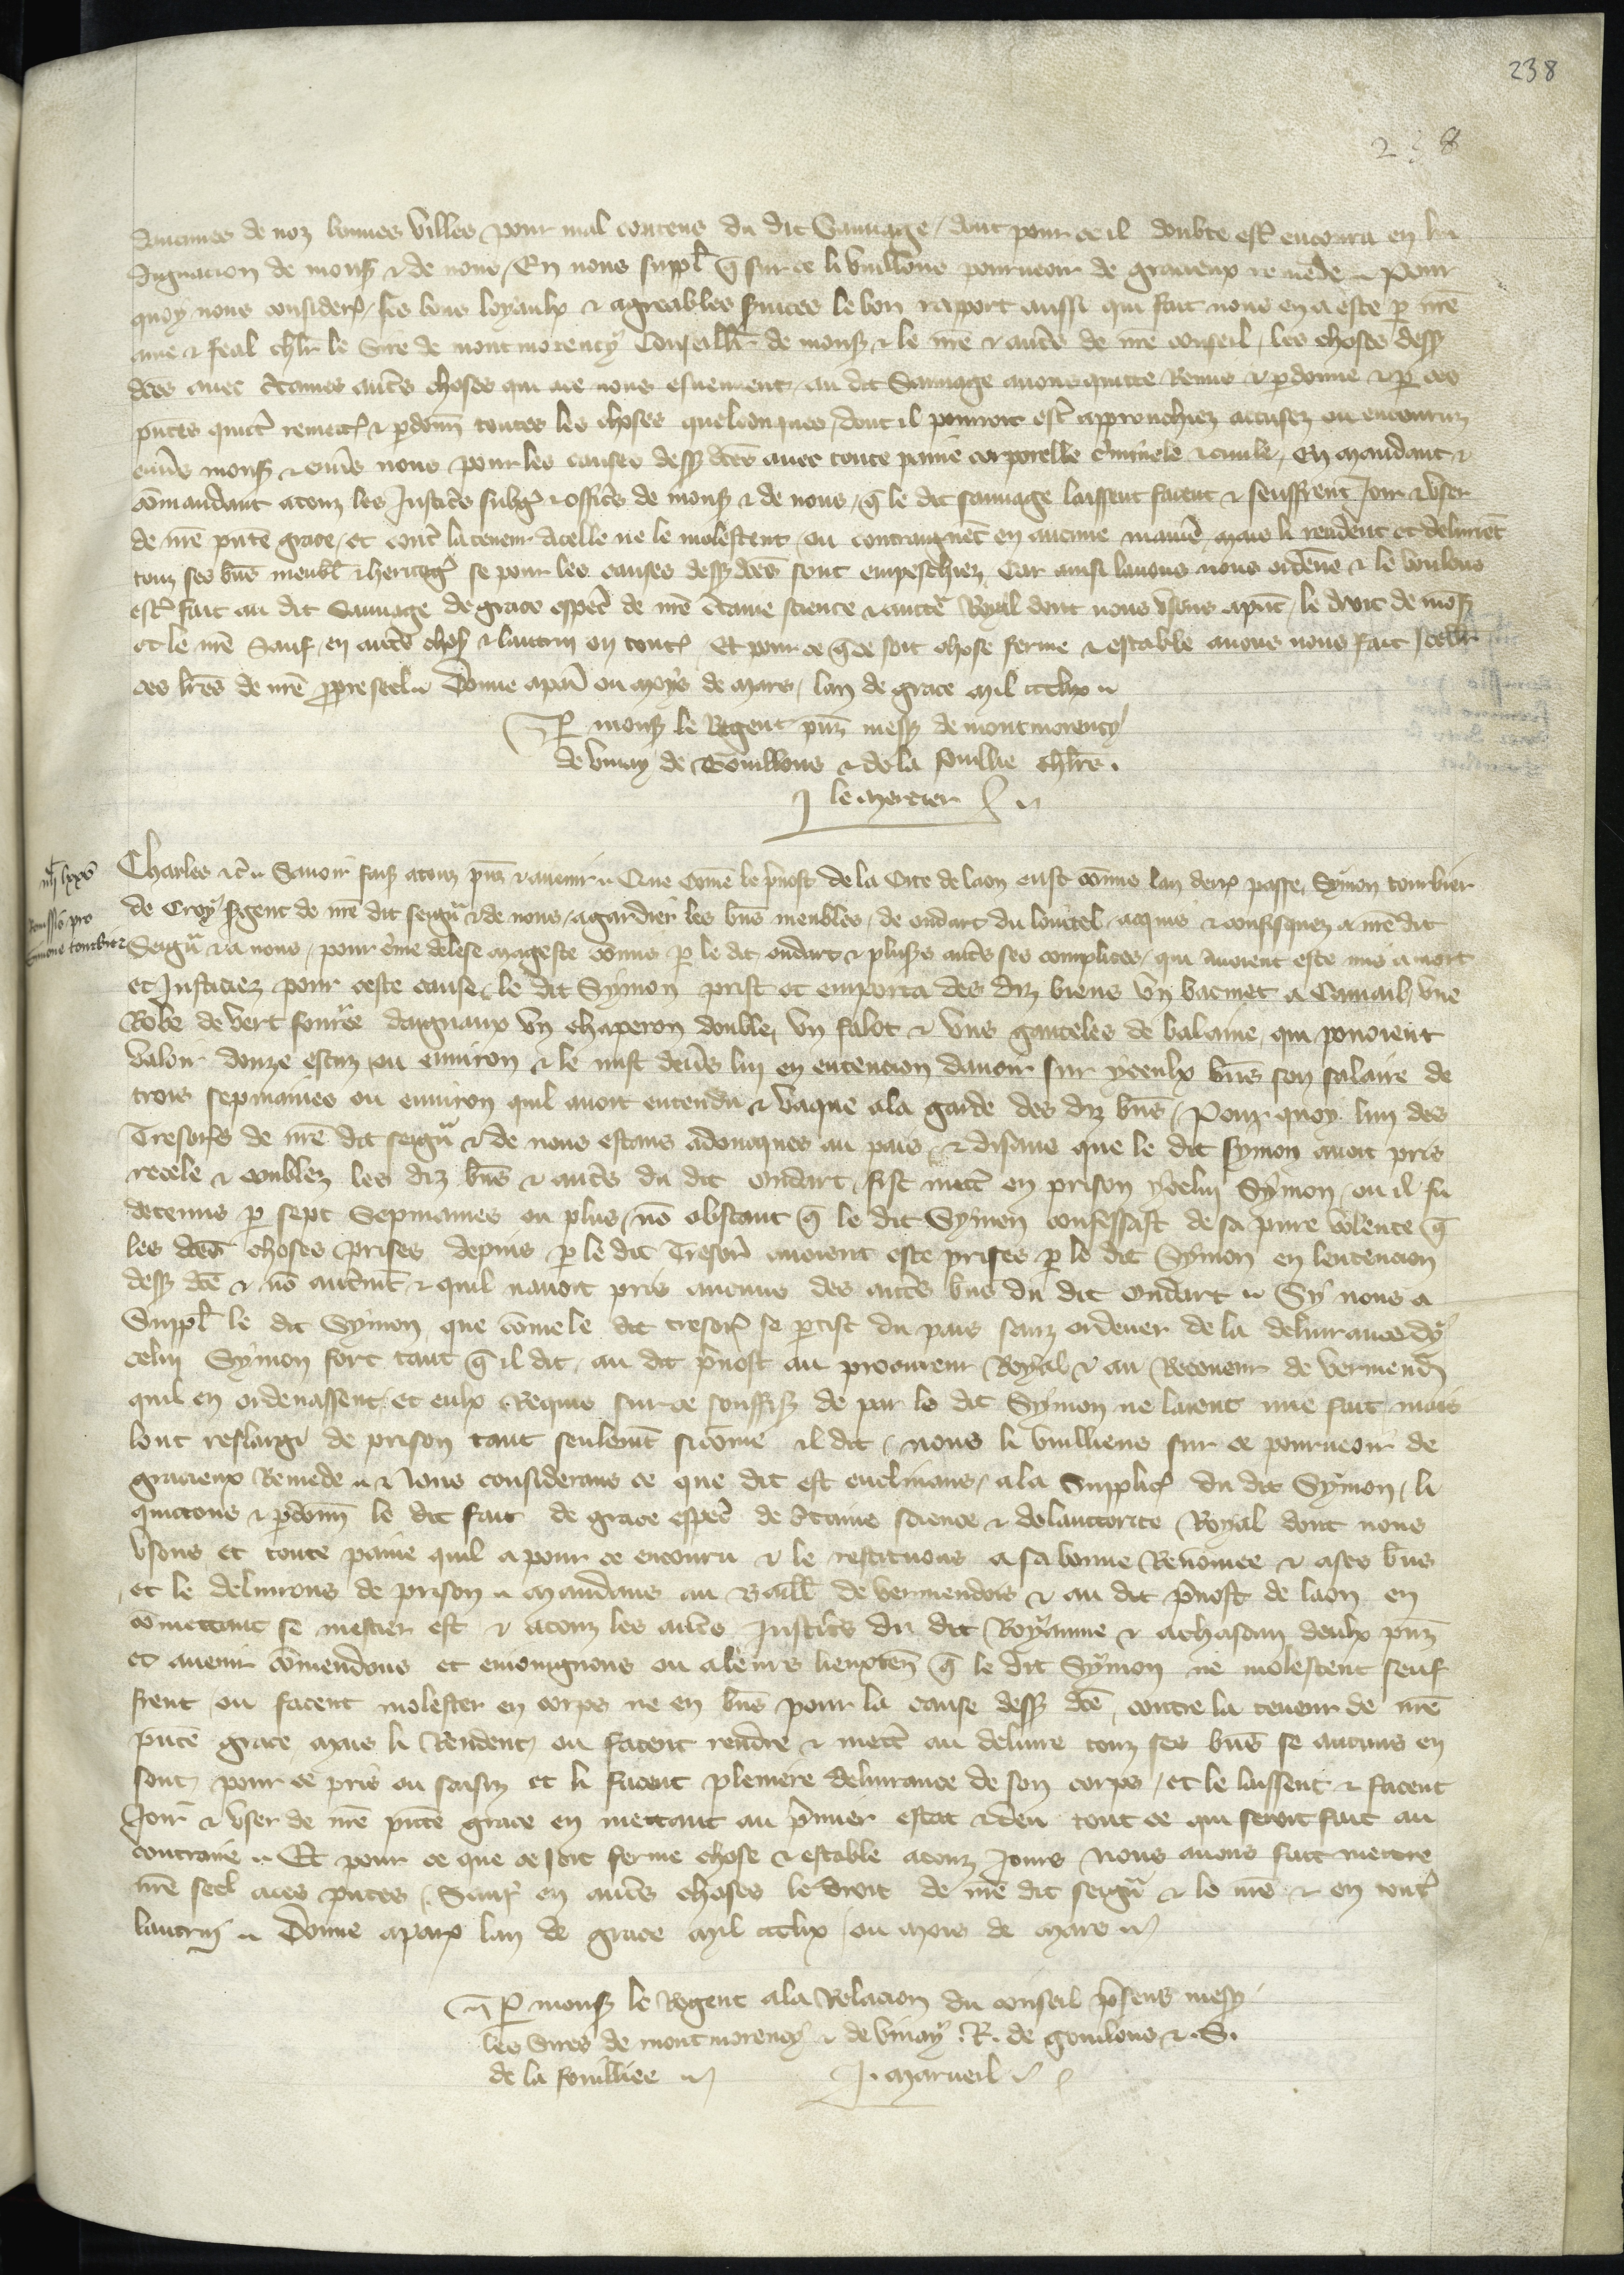 238
238
daucunes de noz bonnes villes pour mal contens du dit Sauuage / dont pour ce il doubte estr encouru en lin
dignacion de mons & de nous / En nous suppl q sur ce li vuillons pourueoir de gracieux remede Pour
quoy nous considers / les bons loyaulx & agreables suices le bon rapport aussi qui fait nous en a este p nre
ame & feal chlr le Sire de montmorency Conseillr de mons & le nre & autres de nre conseil / les choses dess
dces auec ctaines autres choses qui ace nous esmeuuent / au dit Sauuage auons quitte Remis & pdonne & p ces
pntes quictr remects & pdonn toutes les choses quelconques / dont il pourroit estr approuchiez accusez ou encouruz
enuers mons & enuers nous pour les causes dess dces auec toute paine corporelle criminele & ciuile / en mandant &
comandant atouz les Justices subgs & offics de mons & de nous / q le dit sauuage laissent facent & seuffrent Joir & vser
de nre pnte grace / et contr la teneur dicelle ne le molestent / ou contraingnent en aucune maniere / mais li rendent et deliurent
touz ses bns meubl & heritags se pour les causes dess dces sont empeschiez Car ainsi lauons nous ordene & le voulons
estr fait au dit Sauuage de grace espec de nre ctaine science & auctte Royal dont nous vsons apnt / le droit de mons
et le nre Sauf / en autres choses & lautrui en toutes Et pour ce q ce soit chose ferme & estable auons nous fait seellr
ces lres de nre propre seel Donne apar ou moys de Mars / lan de grace mil ccclix
P mons le Regent pns mess de montmorency
de vinay de Gouillons & de la fouillie chlrs .
J le mercier
iiii lxxv
Charles &c Sauoir fais atouz pns & auenir Que Come le preuost de la Cite de laon eust comis lan derr passe, Symon tourbier
de Croy sgent de nre dit seigneur & de nous / agardier les bns meubles de oudart du louuel / acquis & confisquez a nre dit
Remissio pro
Simone tourbier
Seigneur & a nous / pour crime delese mageste comis p le dit oudart & plusrs autres ses complices / qui auoient este mis a mort
et Justiciez pour ceste cause, le dit Symon prist et emporta des diz biens vn bacinet a Camail, vne
Robe de vert fourree daigneaux vn chaperon double, vn falot & vns ganteles de balaine, qui pouoient
valoir douze escuz ou enuiron & le mist deuers lui en entencion dauoir sur yceulx bns son salaire de
trois sepmaines ou enuiron quil auoit entendu & vaque ala garde des diz bns / Pour quoy lun des
Tresoriers de nre dit seigneur & de nous estans adoncques au pais / & disans que le dit symon auoit pris
recele & emblez les diz bns & autres du dit oudart / fist mettr en prison ycelui Symon / ou il fu
detenus p sept Sepmaines ou plus / no obstant q le dit Symon confessast de sa pure volente q
les dces choses prises depuis p le dit Tresorier auoient este prises p le dit Symon en lentencion
dess dce & no autrement & quil nauoit pris aucuns des autres bns du dit Oudart Sy nous a
Suppl le dit Symon que come le dit tresor se ptist du pais sanz ordener de la deliurance dy
celui Symon fors tant q il dit / au dit preuost au procureur Royal & au Receueur de vermend
quil en ordenassent / et eulx Requis sur ce souffis de par le dit Symon ne laient mie fait / mais
lont reslargi de prison tant seulement sicome il dit / nous li vuillions sur ce pourueoir de
gracieux Remede & Nous considerans ce que dit est enclinans / ala Supplic du dit Symon / li
quictons & pdonn le dit fait de grace espec de ctaine science & delauctorite Royal dont nous
vsons et toute paine quil a pour ce encouru & le restituons asa bonne Renomee & ases bns
et le deliurons de prison Mandans au Baill de vermendois & au dit preuost de laon en
comettant se mestier est & atouz les autres Justices du dit Royaume & achascun deulx pns
et auenir comendons et enioignons ou aleurs lieuxten q le dit Symon ne molestent seuf
frent / ou facent molester en corps ne en bns pour la cause dess dce / contre la teneur de nre
pnte grace / mais li Rendent ou facent rendre & mettr au deliure touz ses bns se aucuns en
sont / pour ce pris ou saisiz et li facent pleniere deliurance de son corps / et le laissent & facent
Joir & vser de nre pnte grace en mettant au premier estat & deu tout ce qui seroit fait au
contraire Et pour ce que ce soit ferme chose & estable atouz Jours Nous auons fait mettre
nre seel aces pntes / Sauf en autres choses le droit de nre dit seigneur & le nre & en toutes
lautrui Donne apar lan de grace mil ccclix / ou mois de mars
P mons le Regent ala Relacion du conseil presens mess
les Sires de montmorency & de vinay . R. de gouillons & . S.
de la fouilliee J. marueil